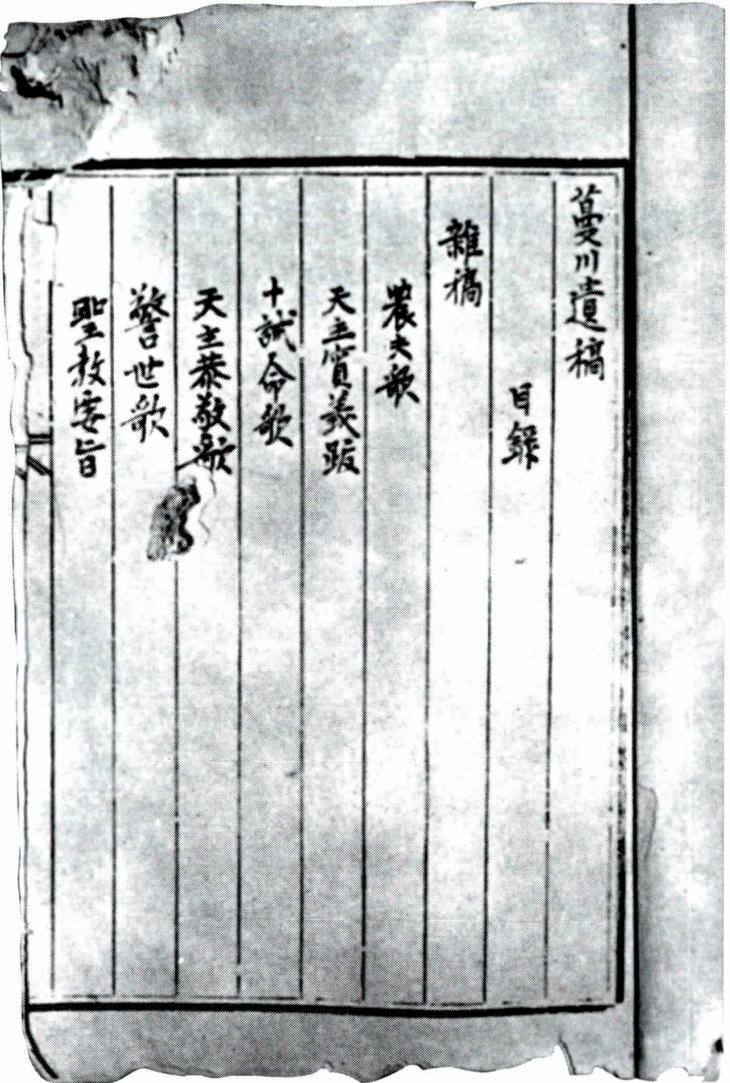 蔓川遺稿
目錄
雜稿
農夫歌
天主實義跋
十誡命歌
天主恭敬歌
警世歌
聖教要旨